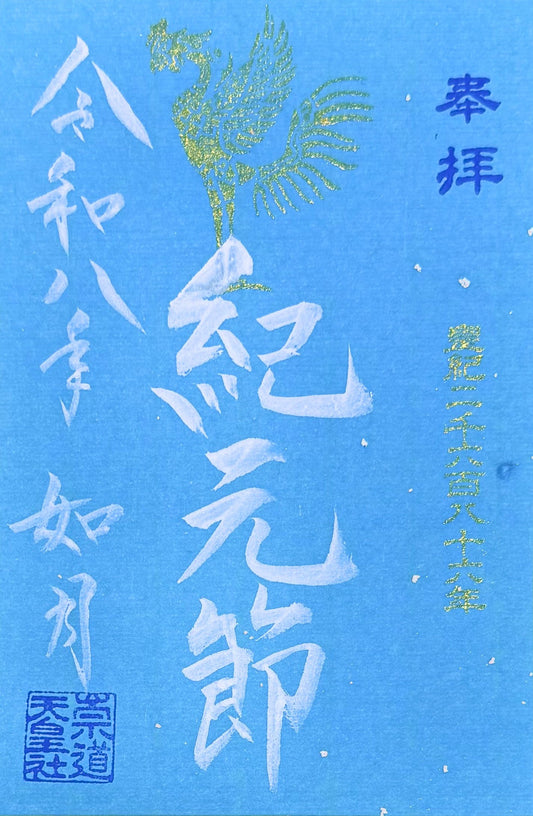 奉拝
皇紀二千六百八十六年
紀元節
令和八年 如月
崇道
天皇社